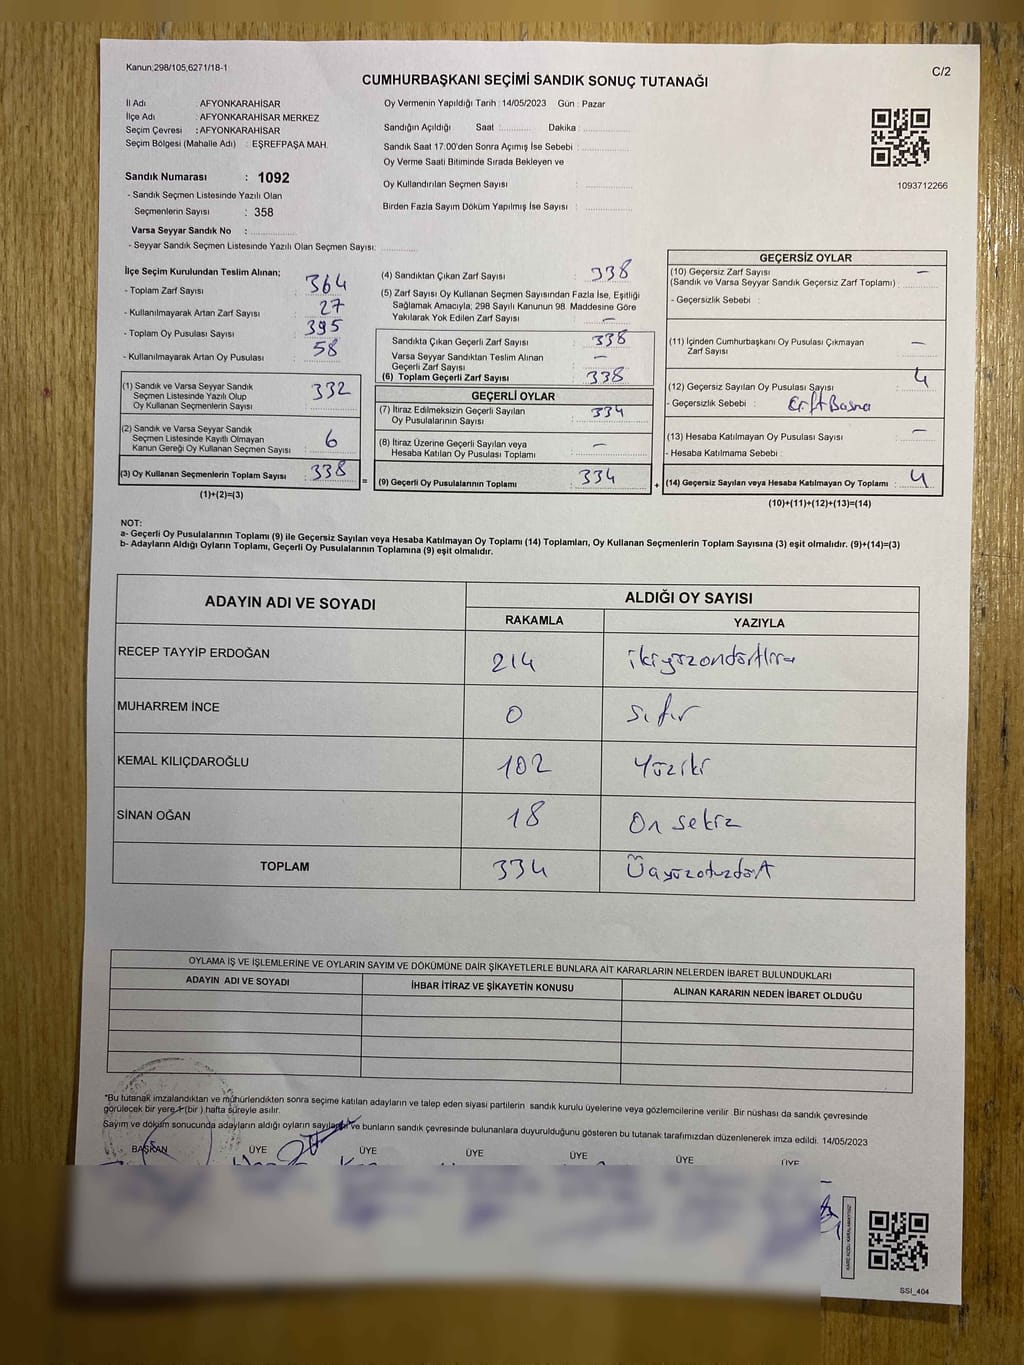 Kanun;298/105,6271/18-1
C/2
CUMHURBAŞKANI SEÇİMİ SANDIK SONUÇ TUTANAĞI
İl Adı : AFYONKARAHİSAR
İlçe Adı : AFYONKARAHİSAR MERKEZ
Seçim Çevresi : AFYONKARAHİSAR
Seçim Bölgesi (Mahalle Adı) : EŞREFPAŞA MAH.
Sandık Numarası : 1092
- Sandık Seçmen Listesinde Yazılı Olan
Seçmenlerin Sayısı : 358
Varsa Seyyar Sandık No :
- Seyyar Sandık Seçmen Listesinde Yazılı Olan Seçmen Sayısı:
Oy Vermenin Yapıldığı Tarih : 14/05/2023 Gün : Pazar
Sandığın Açıldığı Saat : Dakika :
Sandık Saat 17:00'den Sonra Açımış İse Sebebi :
Oy Verme Saati Bitiminde Sırada Bekleyen ve
Oy Kullandırılan Seçmen Sayısı :
Birden Fazla Sayım Döküm Yapılmış İse Sayısı :
1093712266
İlçe Seçim Kurulundan Teslim Alınan;
- Toplam Zarf Sayısı : 364
- Kullanılmayarak Artan Zarf Sayısı : 27
- Toplam Oy Pusulası Sayısı : 395
- Kullanılmayarak Artan Oy Pusulası : 58
(1) Sandık ve Varsa Seyyar Sandık
Seçmen Listesinde Yazılı Olup
Oy Kullanan Seçmenlerin Sayısı : 332
(2) Sandık ve Varsa Seyyar Sandık
Seçmen Listesinde Kayıtlı Olmayan
Kanun Gereği Oy Kullanan Seçmen Sayısı : 6
(3) Oy Kullanan Seçmenlerin Toplam Sayısı : 338
(1)+(2)=(3)
=
(4) Sandıktan Çıkan Zarf Sayısı : 338
(5) Zarf Sayısı Oy Kullanan Seçmen Sayısından Fazla İse, Eşitliği
Sağlamak Amacıyla; 298 Sayılı Kanunun 98. Maddesine Göre
Yakılarak Yok Edilen Zarf Sayısı : –
Sandıkta Çıkan Geçerli Zarf Sayısı : 338
Varsa Seyyar Sandıktan Teslim Alınan
Geçerli Zarf Sayısı : –
(6) Toplam Geçerli Zarf Sayısı : 338
GEÇERLİ OYLAR
(7) İtiraz Edilmeksizin Geçerli Sayılan
Oy Pusulalarının Sayısı : 334
(8) İtiraz Üzerine Geçerli Sayılan veya
Hesaba Katılan Oy Pusulası Toplamı : –
(9) Geçerli Oy Pusulalarının Toplamı : 334
+
GEÇERSİZ OYLAR
(10) Geçersiz Zarf Sayısı –
(Sandık ve Varsa Seyyar Sandık Geçersiz Zarf Toplamı) :
- Geçersizlik Sebebi :
(11) İçinden Cumhurbaşkanı Oy Pusulası Çıkmayan
Zarf Sayısı : –
(12) Geçersiz Sayılan Oy Pusulası Sayısı : 4
- Geçersizlik Sebebi : Çift Basma
(13) Hesaba Katılmayan Oy Pusulası Sayısı : –
- Hesaba Katılmama Sebebi :
(14) Geçersiz Sayılan veya Hesaba Katılmayan Oy Toplamı : 4
(10)+(11)+(12)+(13)=(14)
NOT:
a- Geçerli Oy Pusulalarının Toplamı (9) ile Geçersiz Sayılan veya Hesaba Katılmayan Oy Toplamı (14) Toplamları, Oy Kullanan Seçmenlerin Toplam Sayısına (3) eşit olmalıdır. (9)+(14)=(3)
b- Adayların Aldığı Oyların Toplamı, Geçerli Oy Pusulalarının Toplamına (9) eşit olmalıdır.
ADAYIN ADI VE SOYADI ALDIĞI OY SAYISI
RAKAMLA YAZIYLA
RECEP TAYYİP ERDOĞAN 214
MUHARREM İNCE 0 sıfır
KEMAL KILIÇDAROĞLU 102 Yüziki
SİNAN OĞAN 18 On sekiz
TOPLAM 334
OYLAMA İŞ VE İŞLEMLERİNE VE OYLARIN SAYIM VE DÖKÜMÜNE DAİR ŞİKAYETLERLE BUNLARA AİT KARARLARIN NELERDEN İBARET BULUNDUKLARI
ADAYIN ADI VE SOYADI İHBAR İTİRAZ VE ŞİKAYETİN KONUSU ALINAN KARARIN NEDEN İBARET OLDUĞU
"Bu tutanak imzalandıktan ve mühürlendikten sonra seçime katılan adayların ve talep eden siyasi partilerin sandık kurulu üyelerine veya gözlemcilerine verilir. Bir nüshası da sandık çevresinde
görülecek bir yere 1 (bir ) hafta süreyle asılır.
Sayım ve döküm sonucunda adayların aldığı oyların sayıları ve bunların sandık çevresinde bulunanlara duyurulduğunu gösteren bu tutanak tarafımızdan düzenlenerek imza edildi. 14/05/2023
BAŞKAN ÜYE ÜYE ÜYE ÜYE ÜYE ÜYE
SSI_404